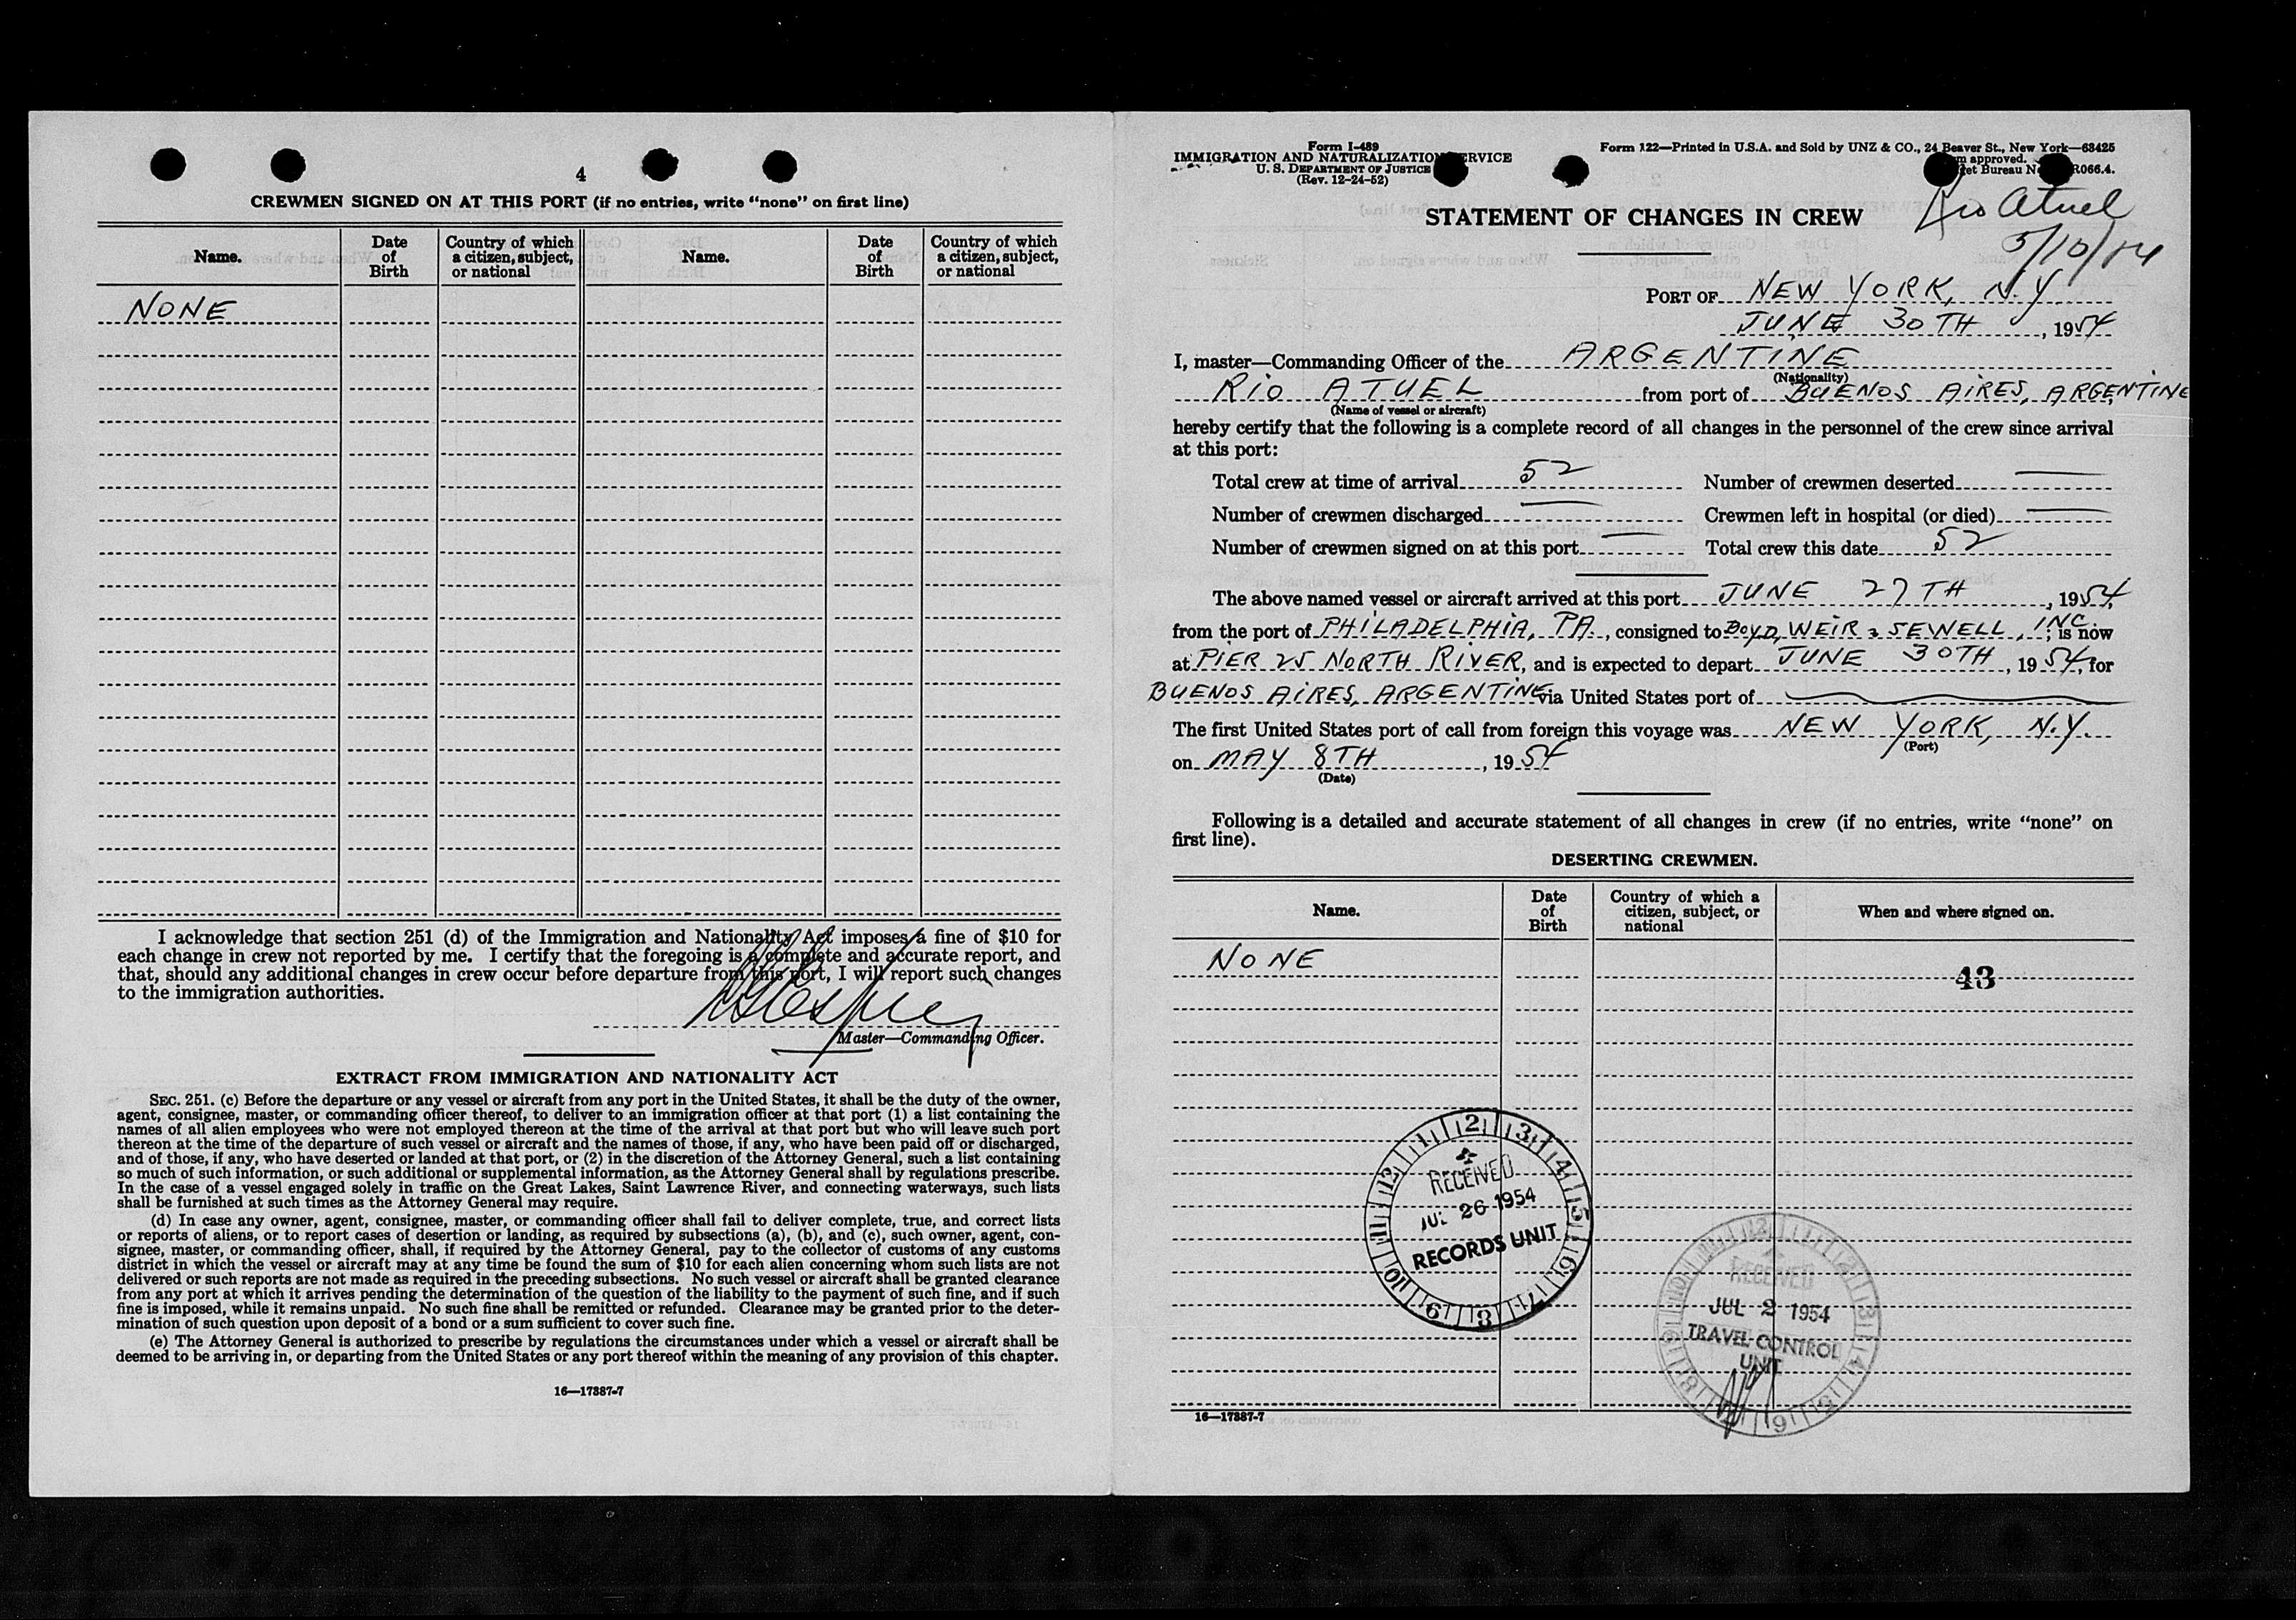 4
CREWMEN SIGNED ON AT THIS PORT (if no entries, write "none" on first line)
Name. Date of Birth Country of which a citizen, subject, or national Name. Date of Birth Country of which a citizen, subject, or national
NONE
I acknowledge that section 251 (d) of the Immigration and Nationality Act imposes a fine of $10 for
each change in crew not reported by me. I certify that the foregoing is a complete and accurate report, and
that, should any additional changes in crew occur before departure from this port, I will report such changes
to the immigration authorities.
Master—Commanding Officer.
EXTRACT FROM IMMIGRATION AND NATIONALITY ACT
SEC. 251. (c) Before the departure or any vessel or aircraft from any port in the United States, it shall be the duty of the owner,
agent, consignee, master, or commanding officer thereof, to deliver to an immigration officer at that port (1) a list containing the
names of all alien employees who were not employed thereon at the time of the arrival at that port but who will leave such port
thereon at the time of the departure of such vessel or aircraft and the names of those, if any, who have been paid off or discharged,
and of those, if any, who have deserted or landed at that port, or (2) in the discretion of the Attorney General, such a list containing
so much of such information, or such additional or supplemental information, as the Attorney General shall by regulations prescribe.
In the case of a vessel engaged solely in traffic on the Great Lakes, Saint Lawrence River, and connecting waterways, such lists
shall be furnished at such times as the Attorney General may require.
(d) In case any owner, agent, consignee, master, or commanding officer shall fail to deliver complete, true, and correct lists
or reports of aliens, or to report cases of desertion or landing, as required by subsections (a), (b), and (c), such owner, agent, con-
signee, master, or commanding officer, shall, if required by the Attorney General, pay to the collector of customs of any customs
district in which the vessel or aircraft may at any time be found the sum of $10 for each alien concerning whom such lists are not
delivered or such reports are not made as required in the preceding subsections. No such vessel or aircraft shall be granted clearance
from any port at which it arrives pending the determination of the question of the liability to the payment of such fine, and if such
fine is imposed, while it remains unpaid. No such fine shall be remitted or refunded. Clearance may be granted prior to the deter-
mination of such question upon deposit of a bond or a sum sufficient to cover such fine.
(e) The Attorney General is authorized to prescribe by regulations the circumstances under which a vessel or aircraft shall be
deemed to be arriving in, or departing from the United States or any port thereof within the meaning of any provision of this chapter.
16—17887-7
Form I-489
IMMIGRATION AND NATURALIZATION SERVICE
U. S. DEPARTMENT OF JUSTICE
(Rev. 12-24-52)
Form 122—Printed in U.S.A. and Sold by UNZ & CO., 24 Beaver St., New York—68425
approved.
Bureau R066.4.
Rio Atuel
5/10/54
STATEMENT OF CHANGES IN CREW
PORT OF NEW YORK, N.Y.
JUNE 30TH, 1954
I, master—Commanding Officer of the ARGENTINE
(Nationality)
RIO ATUEL from port of BUENOS AIRES, ARGENTINE
(Name of vessel or aircraft)
hereby certify that the following is a complete record of all changes in the personnel of the crew since arrival
at this port:
Total crew at time of arrival 52 Number of crewmen deserted —
Number of crewmen discharged — Crewmen left in hospital (or died) —
Number of crewmen signed on at this port — Total crew this date 52
The above named vessel or aircraft arrived at this port JUNE 27TH, 1954,
from the port of PHILADELPHIA, PA., consigned to BOYD, WEIR & SEWELL, INC; is now
at PIER 25 NORTH RIVER, and is expected to depart JUNE 30TH, 1954, for
BUENOS AIRES, ARGENTINE via United States port of
The first United States port of call from foreign this voyage was NEW YORK, N.Y.
(Port)
on MAY 8TH, 1954
(Date)
Following is a detailed and accurate statement of all changes in crew (if no entries, write "none" on
first line).
DESERTING CREWMEN.
Name. Date of Birth Country of which a citizen, subject, or national When and where signed on.
NONE
43
12 1 2 3 4 5 6 7 8 9 10 11
RECEIVED
JUL 26 1954
RECORDS UNIT
RECEIVED
JUL 2 1954
TRAVEL CONTROL
UNIT
16—17887-7